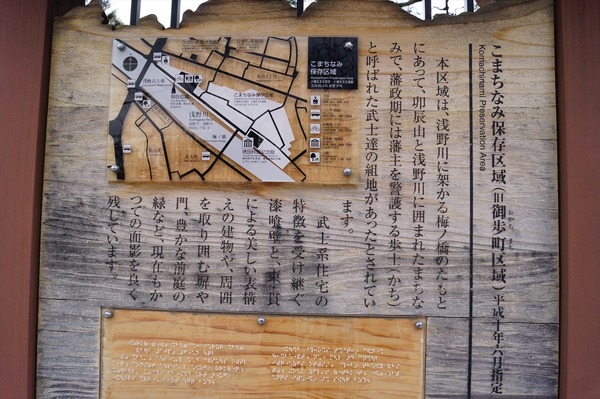 こまちなみ保存区域（旧御歩町区域）平成十年六月指定
おかちまち
Komachinami Preservation Area
本区域は、浅野川に架かる梅ノ橋のたもと
にあって、卯辰山と浅野川に囲まれたまちな
みで、藩政期には藩主を警護する歩士（かち）
と呼ばれた武士達の組地があったとされてい
ます。
武士系住宅の
特徴を受け継ぐ
漆喰壁と、東下貫
による美しい表構
えの建物や、周囲
を取り囲む塀や
門、豊かな前庭の
緑など、現在もか
つての面影を良く
残しています。
こまちなみ
保存区域
こまちなみ保存区域
浅野川
梅ノ橋
徳田秋聲記念館